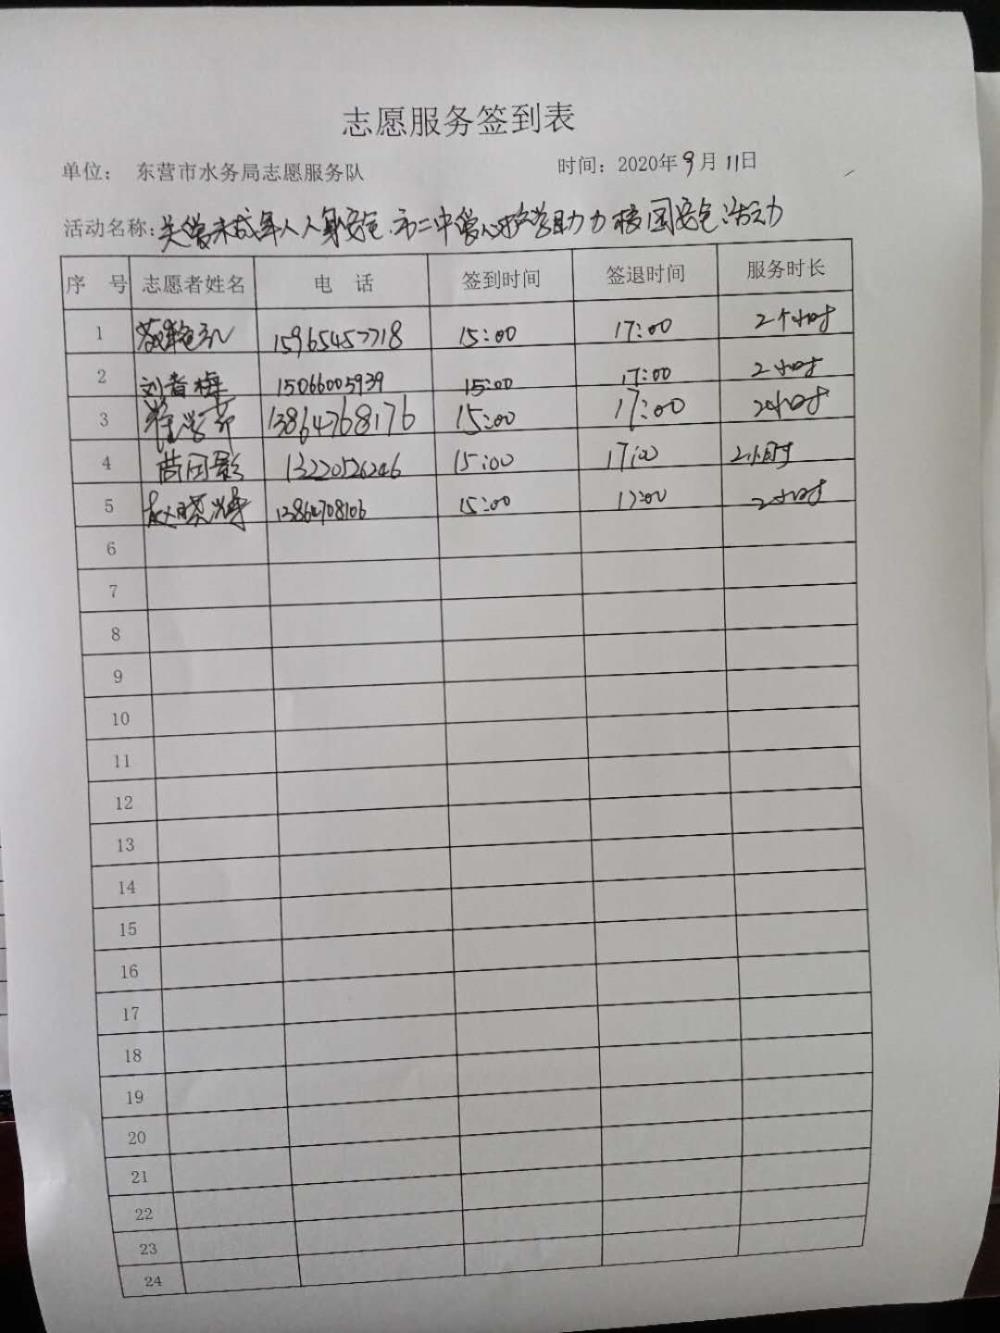 志愿服务签到表
单位： 东营市水务局志愿服务队 时间：2020年9月11日
活动名称：关爱未成年人人身安全 市二中爱心护学助力校园安全活动
序号 志愿者姓名 电话 签到时间 签退时间 服务时长
1 15965457718 15:00 17:00 2个小时
2 刘青梅 15066005939 15:00 17:00 2小时
3 13864768176 15:00 17:00 2小时
4 13220526246 15:00 17:00 2小时
5 赵 13864708106 15:00 17:00 2小时
6
7
8
9
10
11
12
13
14
15
16
17
18
19
20
21
22
23
24